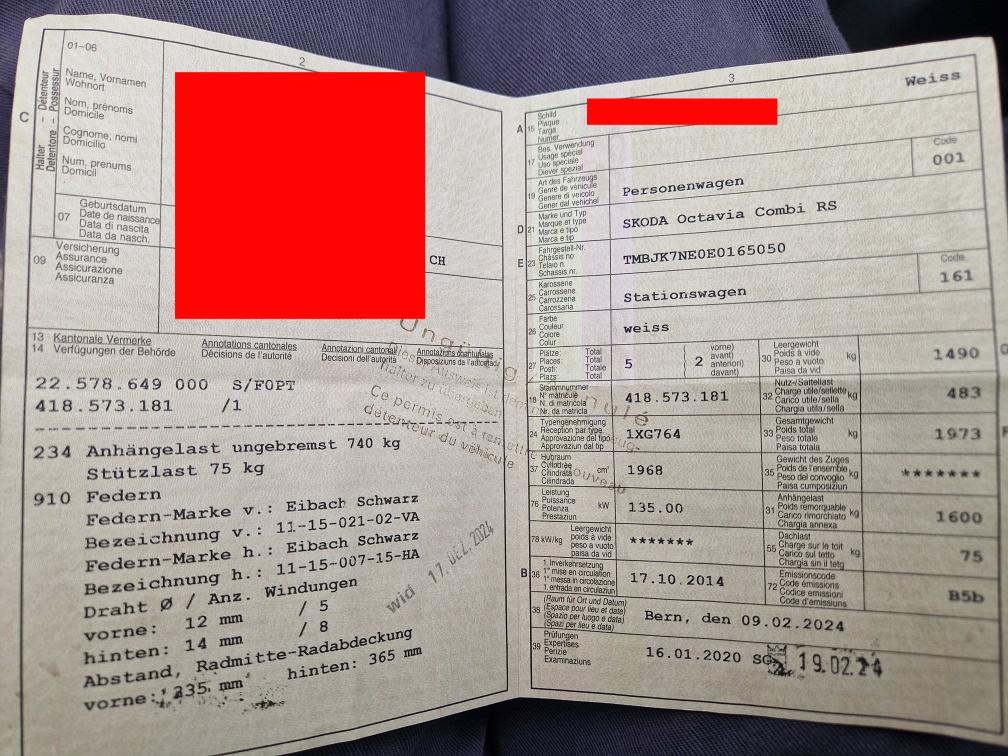 2
C
Halter – Détenteur
Detentore – Possessur
01–06
Name, Vornamen
Wohnort
Nom, prénoms
Domicile
Cognome, nomi
Domicilio
Num, prenums
Domicil
07
Geburtsdatum
Date de naissance
Data di nascita
Data da nasch.
CH
09
Versicherung
Assurance
Assicurazione
Assicuranza
13 Kantonale Vermerke
Annotations cantonales
Annotazioni cantonali
Annotaziuns chantunalas
14 Verfügungen der Behörde
Décisions de l'autorité
Decisioni dell'autorità
Disposiziuns da l'autoritad
22.578.649 000 S/FOPT
418.573.181 /1
234 Anhängelast ungebremst 740 kg
Stützlast 75 kg
910 Federn
Federn-Marke v.: Eibach Schwarz
Bezeichnung v.: 11-15-021-02-VA
Federn-Marke h.: Eibach Schwarz
Bezeichnung h.: 11-15-007-15-HA
Draht Ø / Anz. Windungen
vorne: 12 mm / 5
hinten: 14 mm / 8
Abstand, Radmitte-Radabdeckung
vorne: 335 mm hinten: 365 mm
wid 17. DEZ. 2024
Ungültig
Ce permis est à remettre
détenteur du véhicule
nouveau
3
Weiss
A
15
Schild
Plaque
Targa
Numer
17
Bes. Verwendung
Usage spécial
Uso speciale
Diever spezial
Code
001
19
Art des Fahrzeugs
Genre de véhicule
Genere di veicolo
Gener dal vehichel
Personenwagen
D
21
Marke und Typ
Marque et type
Marca e tipo
Marca e tip
SKODA Octavia Combi RS
E
23
Fahrgestell-Nr.
Châssis no
Telaio n.
Schassis nr.
TMBJK7NE0E0165050
25
Karosserie
Carrosserie
Carrozzeria
Carossaria
Stationswagen
Code
161
26
Farbe
Couleur
Colore
Colur
weiss
27
Plätze: Total
Places: Total
Posti: Totale
Plazs: Total
5
2
vorne)
avant)
anteriori)
davant)
30
Leergewicht
Poids à vide
Peso a vuoto
Paisa da vid
kg
1490
G
18
Stammnummer
N° matricule
N. di matricola
Nr. da matricla
418.573.181
32
Nutz-/Sattellast
Charge utile/sellette
Carico utile/sella
Chargia utila/sella
kg
483
24
Typengenehmigung
Réception par type
Approvazione del tipo
Approvaziun dal tip
1XG764
33
Gesamtgewicht
Poids total
Peso totale
Paisa totala
kg
1973
F
37
Hubraum
Cylindrée
Cilindrata
Cilindrada
cm³
1968
35
Gewicht des Zuges
Poids de l'ensemble
Peso del convoglio
Paisa cumposiziun
kg
*******
76
Leistung
Puissance
Potenza
Prestaziun
kW
135.00
31
Anhängelast
Poids remorquable
Carico rimorchiato
Chargia annexa
kg
1600
78 kW/kg
Leergewicht
poids à vide
peso a vuoto
paisa da vid
*******
55
Dachlast
Charge sur le toit
Carico sul tetto
Chargia sin il tetg
kg
75
B
36
1. Inverkehrsetzung
1re mise en circulation
1a messa in circolazione
1. entrada en circulaziun
17.10.2014
72
Emissionscode
Code émissions
Codice emissioni
Code d'emissiuns
B5b
38
(Raum für Ort und Datum)
(Espace pour lieu et date)
(Spazio per luogo e data)
(Spazi per lieu e data)
Bern, den 09.02.2024
39
Prüfungen
Expertises
Perizie
Examinaziuns
16.01.2020 SG
19.02.24